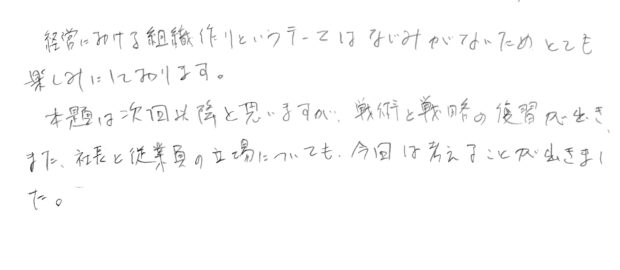 経営における組織作りというテーマはなじみがないためとても
楽しみにしております。
本題は次回以降と思いますが、戦術と戦略の復習が出き、
また、社長と従業員の立場についても、今回は考えることが出きまし
た。